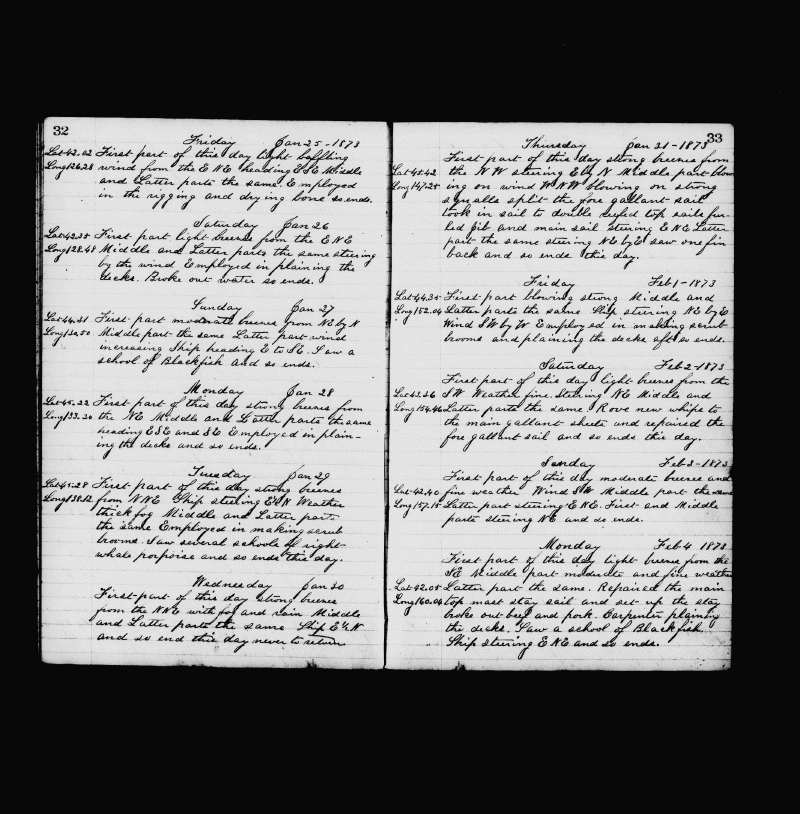 32
Friday Jan 25-1873
Lat 42.02 First part of this day light baffling
Long 126.28 wind from the E N E heading E S E Middle
and Latter parts the same. Employed
in the rigging and drying bone so ends.
Saturday Jan 26
Lat 42.35 First part light breeses from the E N E
Long 128.48 Middle and Latter parts the same steering
by the wind Employed in plaining the
decks. Broke out water so ends.
Sunday Jan 27
Lat 44.31 First part moderate breeses from NE by N
Long 130.50 Middle part the same Latter part wind
increasing Ship heading E to SE. Saw a
school of Blackfish and so ends.
Monday Jan 28
Lat 45.22 First part of this day strong breeses from
Long 133.30 the NE Middle and Latter parts the same
heading ESE and SE Employed in plain-
ing the decks and so ends.
Tuesday Jan 29
Lat 45.28 First part of this day strong breeses
Long 138.12 from NNE Ship steering E½N Weather
thick fog Middle and Latter parts
the same Employed in making scrub
brooms. Saw several schools of right-
whale porpoise and so ends this day.
Wednesday Jan 30
First part of this day strong breeses
from the NNE with fog and rain Middle
and Latter parts the same Ship E½N
and so end this day never to return
33
Thursday Jan 31-1873
First part of this day strong breeses from
Lat 45.42 the NW steering E by N Middle part blow
Long 147.25 ing on wind WNW blowing on strong
squalls split the fore gallant sail
took in sail to double reefed top sails fur-
led jib and main sail steering ENE Latter
part the same steering NE by E saw one fin
back and so ends this day.
Friday Feb 1-1873
Lat 44.35 First part blowing strong Middle and
Long 152.04 Latter parts the same Ship steering NE by E
Wind SW by W Employed in making scrub
brooms and plaining the decks aft so ends.
Saturday Feb 2-1873
First part of this day light breeses from the
Lat 43.26 SW Weather fine. Steering NE Middle and
Long 154.46 Latter parts the same Rove new whips to
the main gallant sheets and repaired the
fore gallant sail and so ends this day.
Sunday Feb 3-1873
First part of this day moderate breese and
Lat 42.40 fine weather Wind SW Middle part the same
Long 157.15 Latter part steering ENE. First and Middle
parts steering NE and so ends.
Monday Feb 4 1873
First part of this day light breeses from the
SE Middle part moderate and fine weather
Lat 42.05 Latter part the same. Repaired the main
Long 160.04 top mast stay sail and set up the stay
broke out beef and pork. Carpenter plaining
the decks. Saw a school of Blackfish.
Ship steering ENE and so ends.